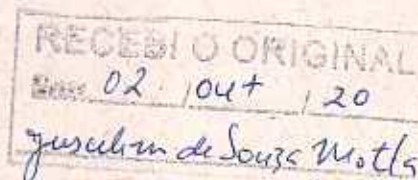 RECEBI O ORIGINAL
Em: 02 / out / 20
de Souza Motta